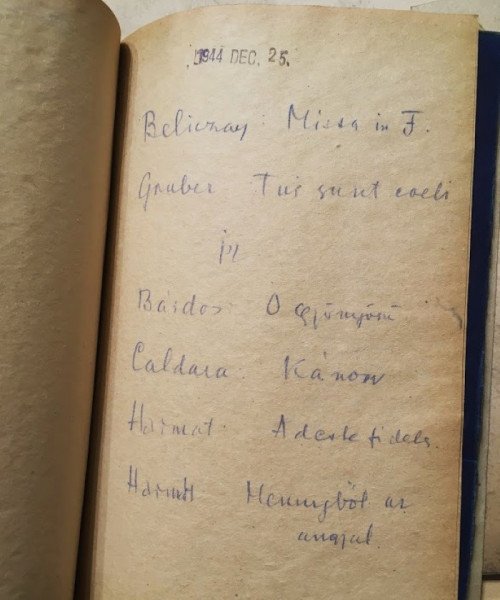 1944 DEC. 25.
Beliczay: Missa in F.
Gruber Tui sunt coeli
Bárdos: Ó gyönyörű
Caldara: Kánon
Harmat: Adeste fideles.
Harmat Mennyből az
angyal.